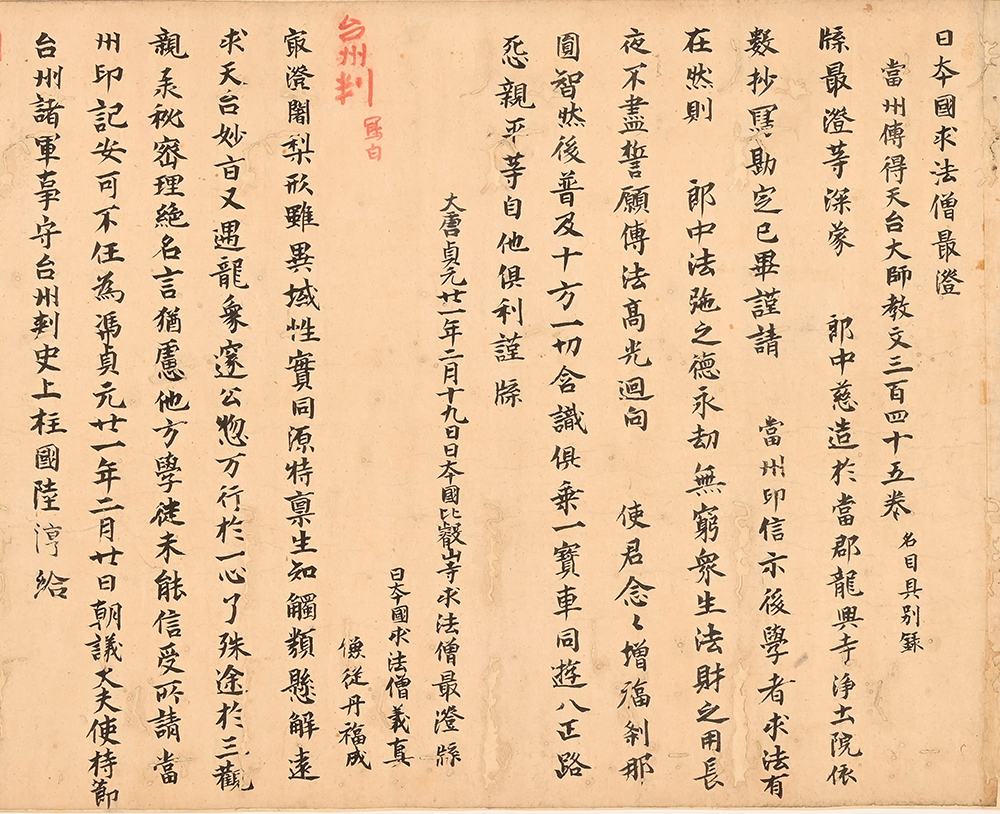 日夲國求法僧最澄
當州傳得天台大師教文三百四十五卷 名目具別錄
牒最澄等深蒙 郎中慈造於當郡龍興寺浄土院依
數抄寫勘定已畢謹請 當州印信示後學者求法有
在然則 郎中法施之德永劫無窮衆生法財之用長
夜不盡誓願傳法高光迴向 使君念〻增福刹那
圓智然後普及十方一切含識俱乗一寳車同遊八正路
怨親平等自他俱利謹牒
大唐貞元廿一年二月十九日日夲國比叡山寺求法僧最澄牒
日夲國求法僧義真
傔従丹福成
台州判
寫白
最澄闍梨形雖異域性實同源特禀生知觸類懸解遠
求天台妙㫖又遇龍象邃公惣万行於一心了殊途於三觀
親承秘密理絶名言猶慮他方學徒未能信受所請當
州印記安可不任為馮貞元廿一年二月廿日朝議大夫使持節
台州諸軍事守台州刺史上柱國陸淳給